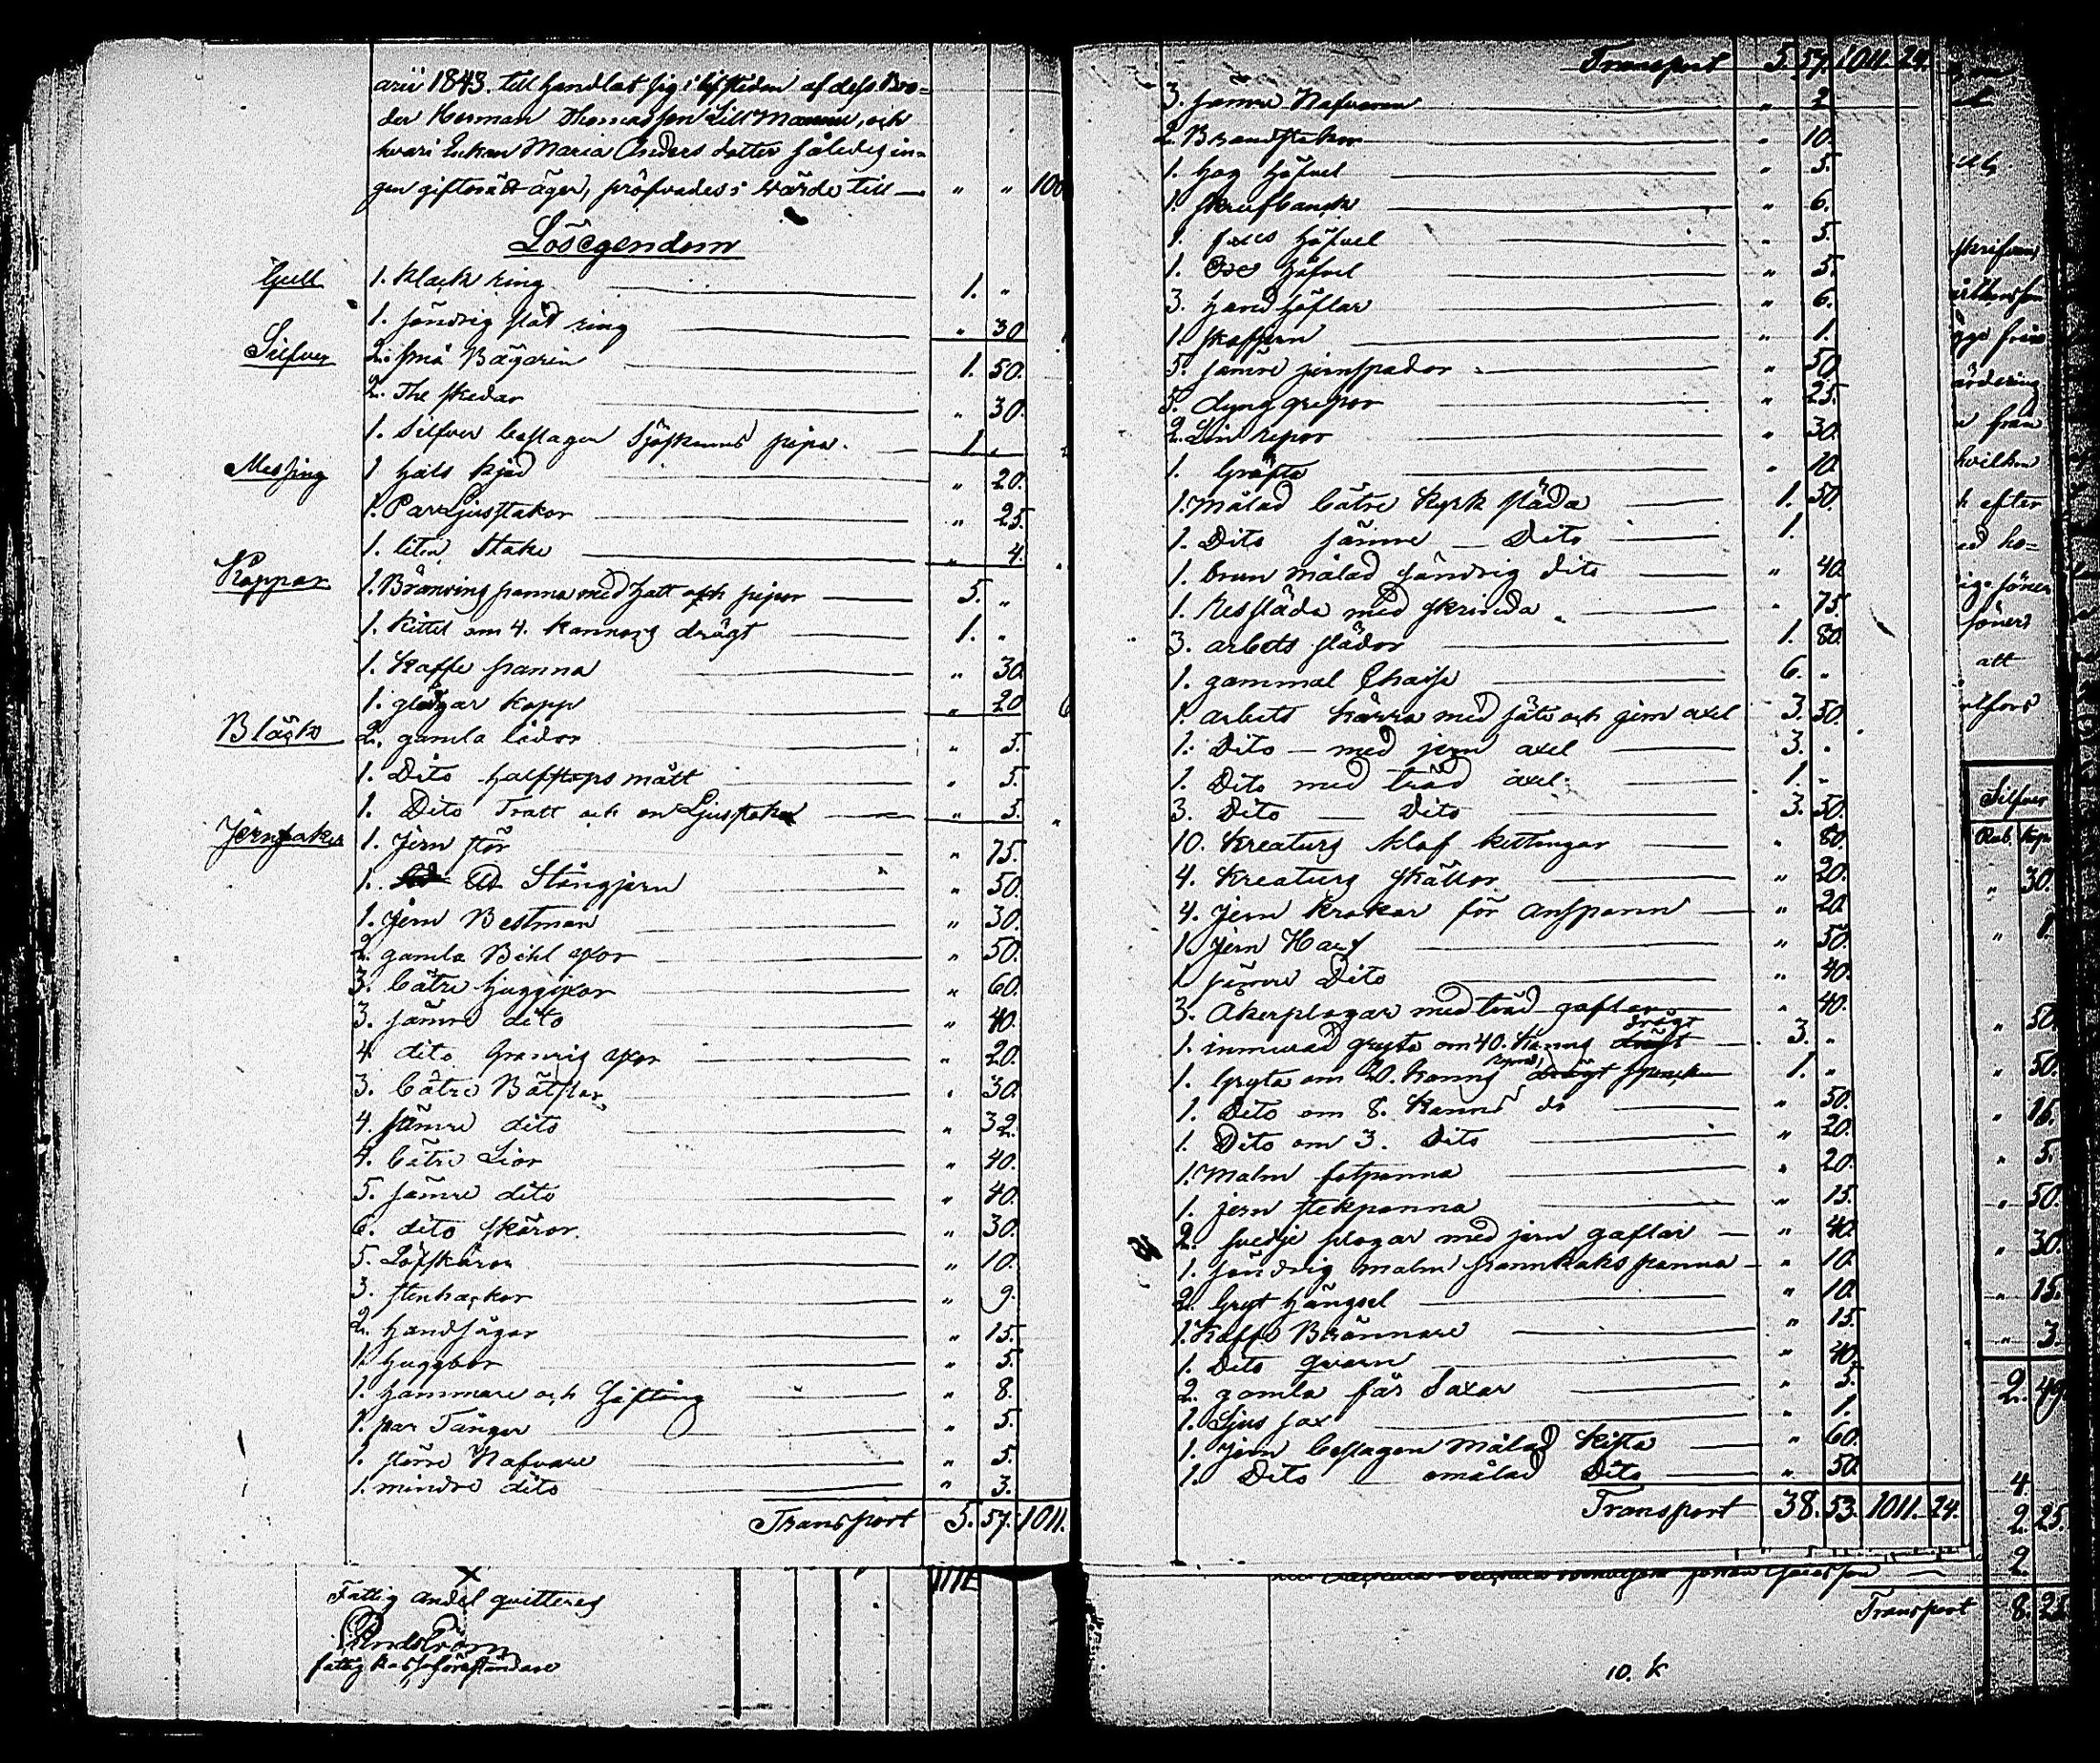 arii 1843. till handlat sig i lifstiden af dess Bro-
der Herman Thomasson Lill Mannu, och
hvari Enkan Maria Anders dotter således in-
gen giftorätt äger, pröfvades i värde till — " " 100
Lösegendom
Gull 1. Klack ring 1. "
1. söndrig slät ring " 30.
Silfver 2. små Bägarin 1. 50.
2. The skedar " 30.
1. Silfver beslagen Sjöskums pipa. 1. "
Messing 1 hals kjäd " 20.
1. Par Ljusstakor " 25.
1. liten Stake " 4.
Koppar 1. Bränvins panna med hatt och pipor 5. "
1. Kittel om 4. Kannors drägt 1. "
1. Kaffe panna " 30.
1. kopp " 20
Bläck 2. gamla lådor " 5.
1. Dito halfstops mått " 5.
1. Dito Tratt och en Ljusstaka " 5.
Jernsaker 1. Jern stör " 75.
1. Stångjern " 50.
1. Jern Bestman " 30.
2. gamla Bihl yxor " 50.
3. bätre huggyxor " 60.
3. sämre dito " 40.
4. dito Granris yxor " 20.
3. bätre " 30.
4. sämre dito " 32.
4. bätre Lior " 40.
5. sämre dito " 40.
6. dito skäror " 30.
5. Löfskäror " 10.
3. stenhackor " 9.
2. handsågar " 15.
1. huggbor " 5.
1. hammare och Hoftång " 8.
1. par Tänger " 5.
1. större Nafvare " 5.
1. mindre dito " 3.
Transport 5. 57. 1011.
Fattig andel qvitteras
Lindström
fattig kasseföreståndare
Transport 5 57. 1011. 24.
3. sämre Nafvaren " 2
2. Brandstakor " 10.
1. hog höfvel " 5.
1. Skrufbänck " 6.
1. höfvel " 5.
1. höfvel " 5.
3. hand höflar " 6.
1. skafjern " 1.
5. sämre jernspador " 50
5. dynggrepor " 25.
2. Lin repor " 30.
1. Gräfta " 10.
1. målad bätre Kyrk släda 1. 50.
1. Dito sämre — Dito 1.
1. brun målad söndrig dito " 40.
1. Ressläda med skrinda " 75.
3. arbets slädor 1. 80.
1. gammal Chaise 6. "
1. arbets Kärra med säte och jern axel 3. 50.
1. Dito — med jern axel 3. "
1. Dito med träd axel 1. "
3. Dito — Dito 3. 50.
10. Kreaturs klaf kettingar " 80.
4. Kreaturs skällor " 20.
4. Jern krokar för Anspann " 20
1. Jern Harf " 50.
1. sämre Dito " 40.
3. Åkerplogar med träd gaflar " 40.
1. inmurad gryta om 40. Kanns drägt 3. "
1. Gryta om 20. Kanns rymd 1. "
1. Dito om 8. Kanns do " 50.
1. Dito om 3. Dito " 20.
1. Malm fotpanna " 20.
1. jern stekpanna " 15.
2. svedje plogar med jern gaflar " 40.
1. söndrig malm pannkaks panna " 10.
2. Gryt hängsel " 10.
1. Kaffe Brännare " 15.
1. Dito qvarn " 40.
2. gamla får Saxar " 5.
1. Ljus sax " 1.
1. Jern beslagen målad Kista " 60.
1. Dito omålad Dito " 50.
Transport 38. 53. 1011. 24.
Transport 8. 25.
10. K
från
hvilken
efter
söner
att
Silfver
Rub. Kop.
" 30.
" 1.
" 50.
" 50.
" 15.
" 5.
" 50.
" 30.
" 15.
" 3.
2. 49.
4
2. 25.
2.